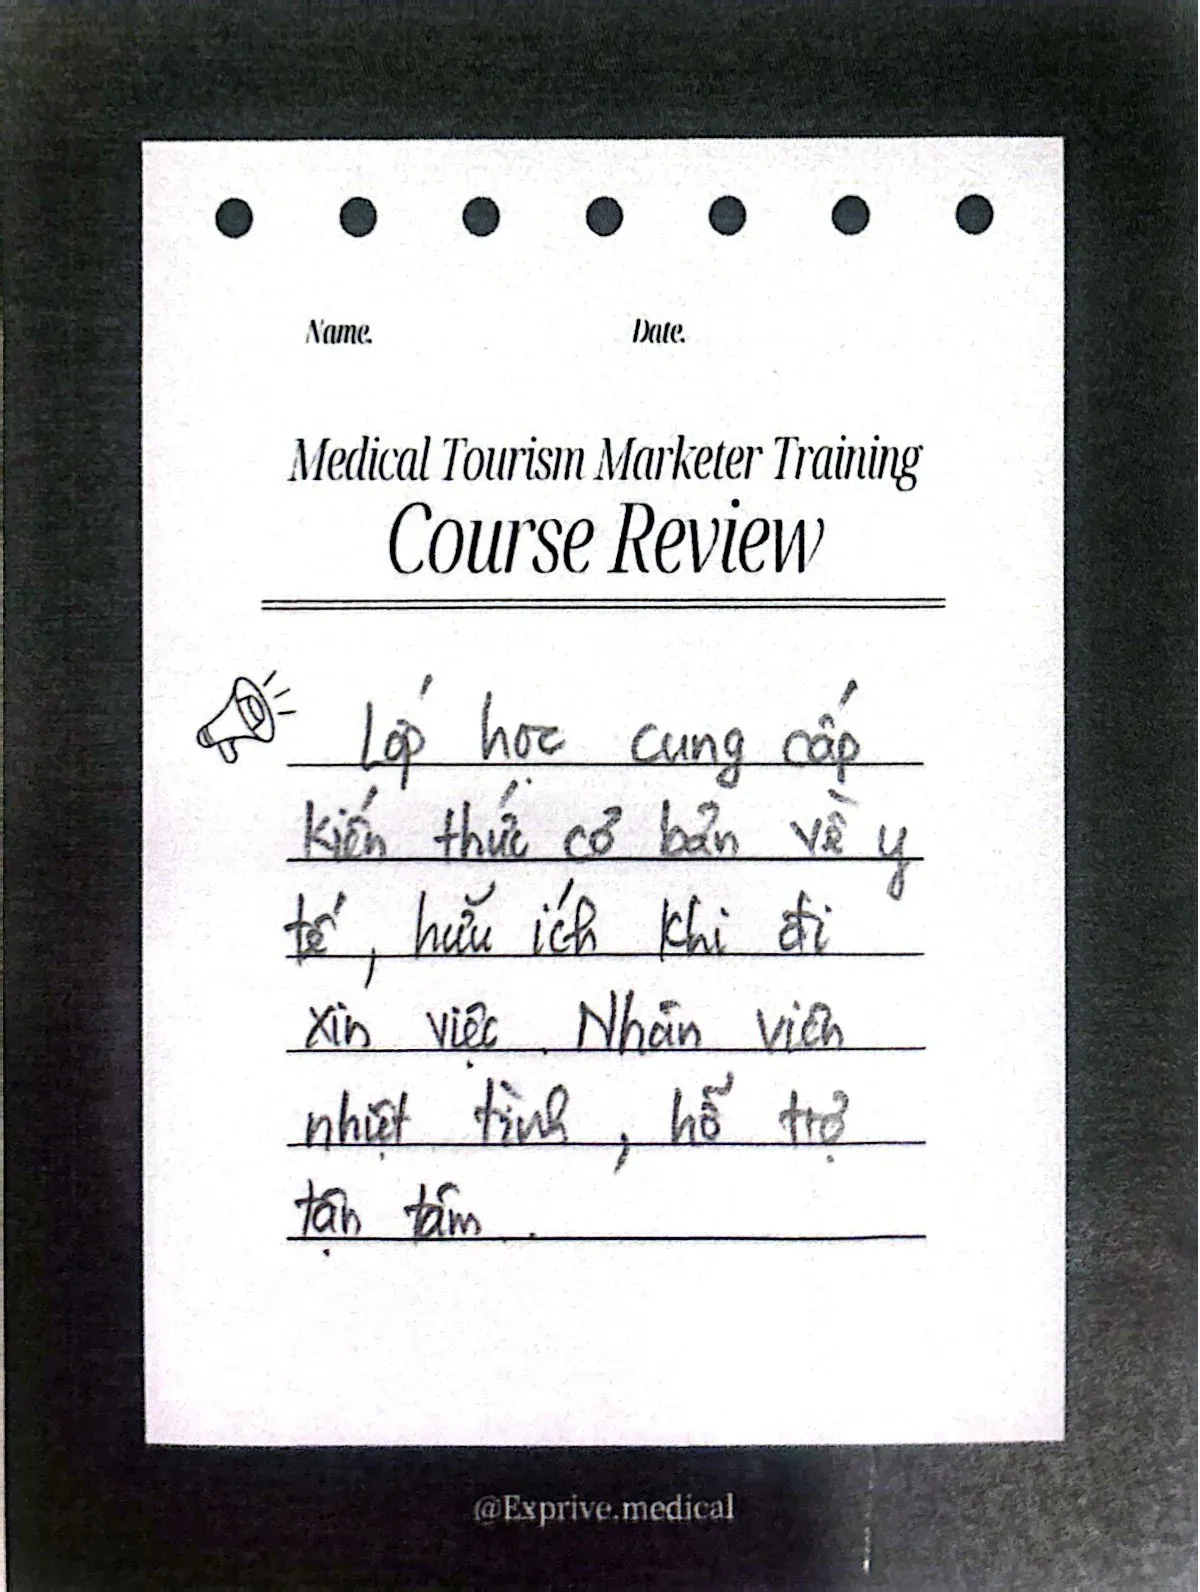 Name. Date.
Medical Tourism Marketer Training
Course Review
Lớp học cung cấp
kiến thức cơ bản về y
tế, hữu ích khi đi
xin việc. Nhân viên
nhiệt tình, hỗ trợ
tận tâm.
@Exprive.medical